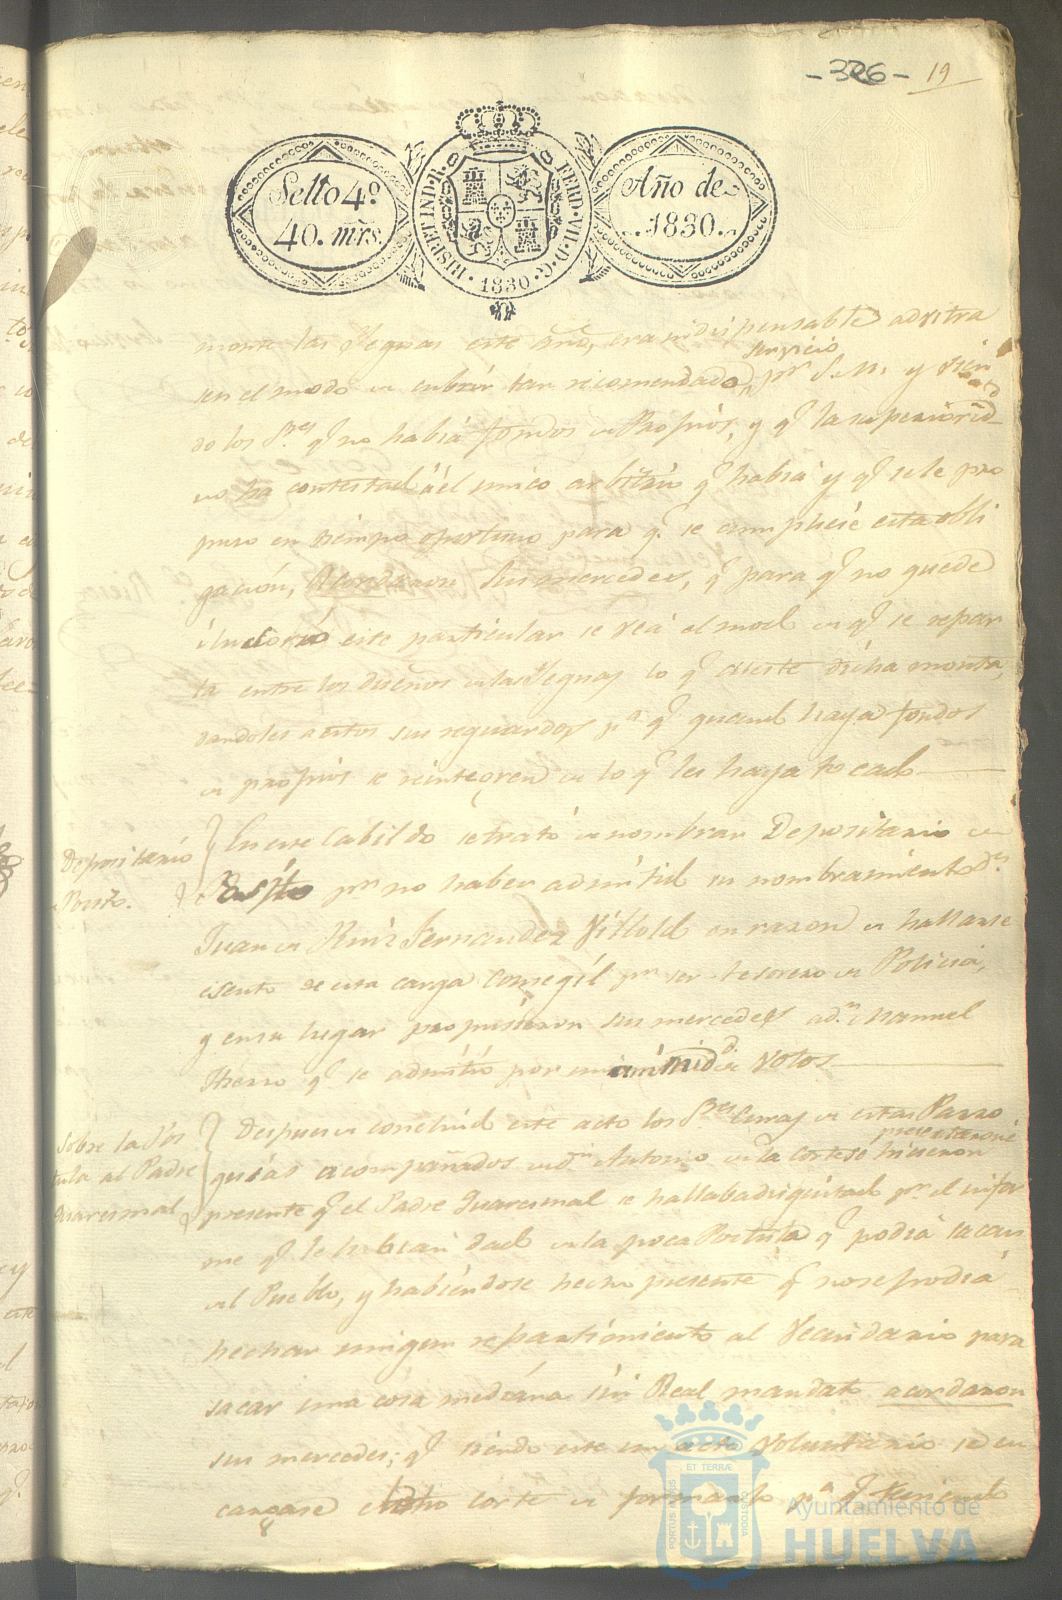 -326- 19
Sello 4º.
40. mrs.
HISP. ET IND. R.
FERD. VII. D. G.
1830.
Año de
1830.
monte las Yeguas este año, era indispensable advitra
servicio
sen el modo de cubrir tan recomendado pr. S. M. y
do los Sres. qe. no había fondos de Propios, y qe. la superioridd.
no ha contestado al unico arbitrio qe. había y qe. se le pro
puso en tiempo oportuno para qe. se cumpliese esta obli
gación, Acordaron sus mercedes, qe. para qe. no quede
ilusorio este particular se vea el modo de qe. se repar
ta entre los dueños de las Yeguas lo qe. cueste dicha monta,
dandoles a estos sus reguardos pa. qe. quando haya fondos
de propios se reintegren de lo qe. les haya tocado
Depositario
Posito.
En este Cabildo se trató de nombrar Depositario de
Posito pr. no haber admitido su nombramiento Dn.
Juan de Ruiz Fernandez Villoldo en razon de hallarse
esento de esta carga Consegil pr. ser tesorero de Policia,
y en su lugar propusieron sus mercedes a dn. Manuel
Hierro qe. se admitió por unanimidd. de votos
Sobre la Pos
tula al Padre
Quaresmal
Despues de concluido este acto los Sres. Curas de estas Parro
presentaron é
quias acompañados de dn. Antonio de la Corte se hicieron
presente qe. el Padre Quaresmal se hallaba disgustado pr. el infor
me qe. le habian dado de la poca Postula qe. podia sacar
del Pueblo, y habiendose hecho presente qe. no se podia
hechar ningun repartimiento al Vecindario para
sacar una cosa mediana sin Real mandato acordaron
sus mercedes; qe. siendo este un acto voluntario se en
cargase dho Corte de formarlo pa. qe.
PORTUS MARIS ET TERRÆ CUSTODIA
Ayuntamiento de
HUELVA